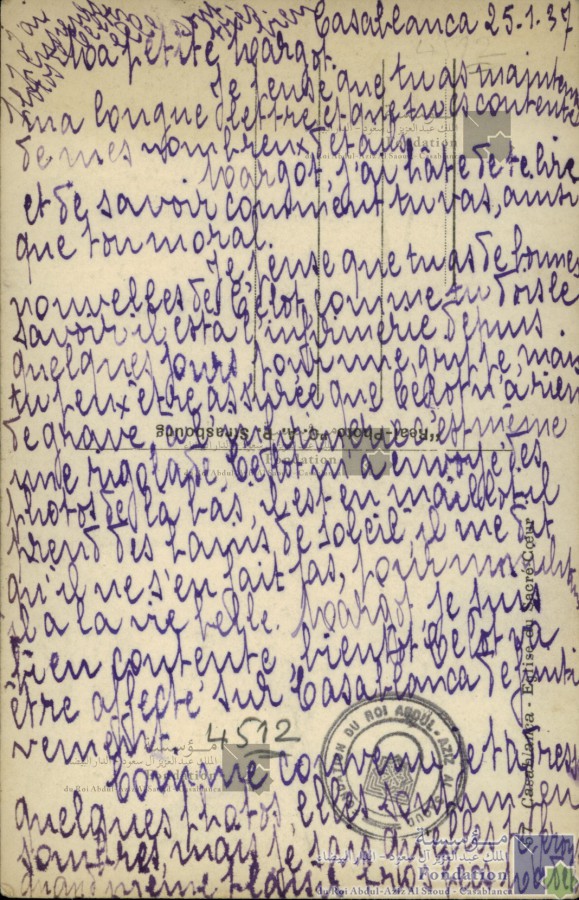 Casablanca 25-1-37
Ma petite Margot.
Je pense que tu as maintenant
ma longue lettre et que tu es contente
de mes nombreux détails.
Margot, j'ai hâte de te lire
et de savoir comment tu vas, ainsi
que ton moral.
Je pense que tu as de bonnes
nouvelles de Bébot, comme tu dois le
savoir il est à l'infirmerie depuis
quelques jours pour une grippe, mais
tu peux être assurée que Bébot n'a rien
de grave, c'est même
une rigolade. Bébot m'a envoyé des
photos de là bas, il est en maillot il
prend des bains de soleil il me dit
qu'il ne s'en fait pas, pour
il a la vie belle. Margot, je suis
bien contente, bientôt Bébot va
être affecté sur Casablanca défini
vement.
4512
Comme convenu je t'adresse
quelques photos, elles sont un peu
sombres, mais je sais qu'elles te feront
quand même plaisir
"Réal-Photo" C. A. P. Strasbourg
Casablanca - Eglise du Sacré Cœur
FONDATION DU ROI ABDUL-AZIZ AL SAOUD
مؤسسة
الملك عبد العزيز آل سعود - الدار البيضاء
Fondation
du Roi Abdul-Aziz Al Saoud - Casablanca